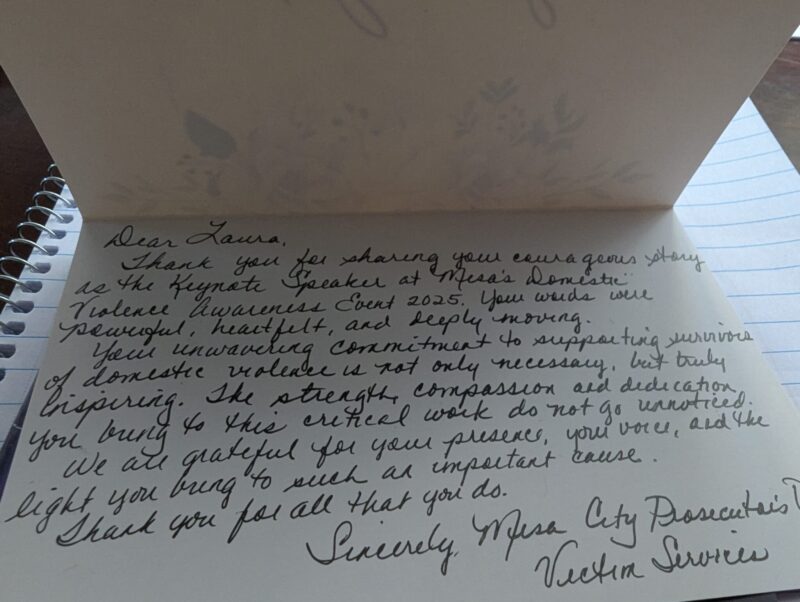 Dear Laura,
Thank you for sharing your courageous story
as the Keynote Speaker at Mesa's Domestic
Violence Awareness Event 2025. Your words were
powerful, heartfelt, and deeply moving.
Your unwavering commitment to supporting survivors
of domestic violence is not only necessary, but truly
inspiring. The strength, compassion and dedication
you bring to this critical work do not go unnoticed.
We are grateful for your presence, your voice, and the
light you bring to such an important cause.
Thank you for all that you do.
Sincerely, Mesa City Prosecutor's
Victim Services